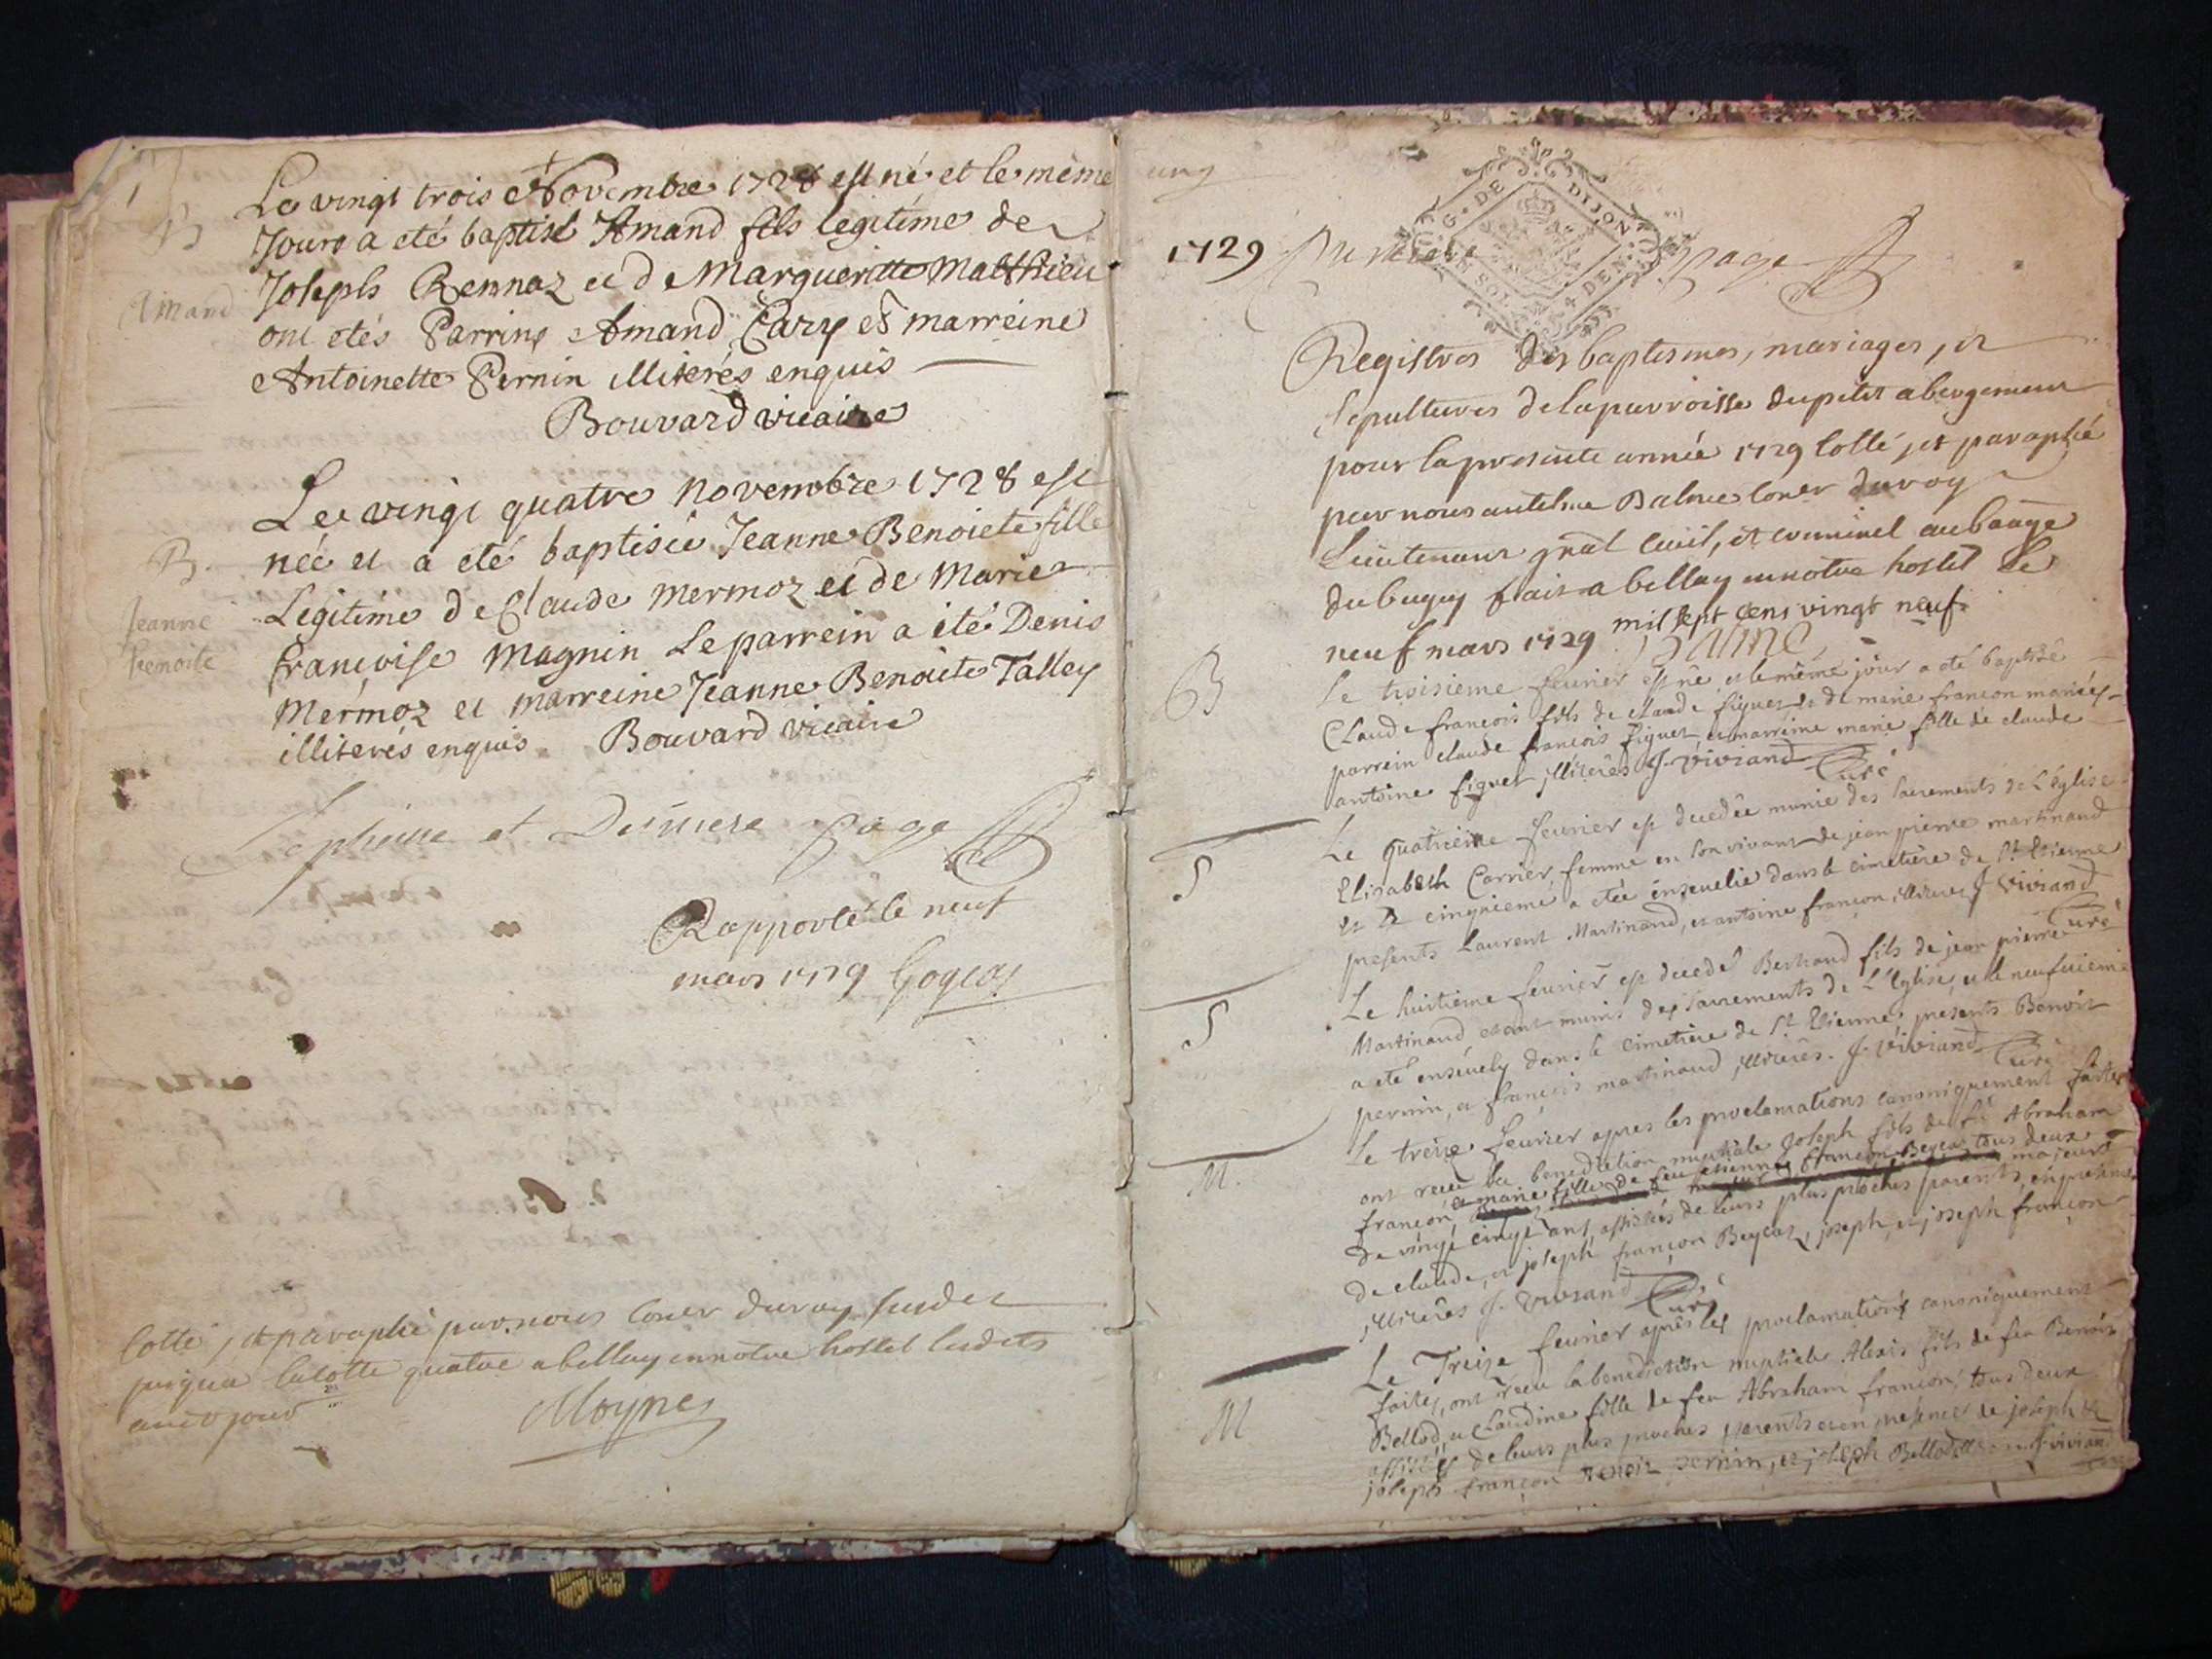 B
Amand
Le vingt trois Novembre 1728 est né et le même
Jour a eté baptisé Amand fils legitime de
Joseph Rennaz et de Margueritte Matthieu
ont etés Parrins Amand Cary et marreine
Antoinette Pernin illiterés enquis
Bouvard vicaire
B.
Jeanne
benoite
Le vingt quatre Novembre 1728 est
née et a eté baptisée Jeanne Benoiete fille
Legitime de Claude Mermoz et de Marie
francoise Magnin Le parrein a eté Denis
Mermoz et marreine Jeanne Benoiete Talley
illiterés enquis Bouvard vicaire
et Derniere page
Rapporté le neuf
mars 1729
Cotté, et paraphé par nous Coner du roy susdit
jusqua la cotte quatre a bellay en notre hostel lesdits
an et jour
Moyne
ung
G. DE DIJON
SOL 4 DEN.
1729 premiere page
Registres des baptesmes, mariages, et
sepultures de la parroisse du petit abergement
pour la presente année 1729 cotté, et paraphé
par nous antelme Balme Coner du roy
Lieutenant gnãl civil, et criminel au baage
du bugey fait a bellay en notre hostel le
neuf mars 1729 mil sept cens vingt neuf.
Balme
B
Le troisieme feuvrier est né et le même jour a eté baptisé
Claude françois fils de claude figuet et de marie francon mariés
parrein claude francois figuet et marreine marie fille de claude
antoine figuet illiterés J. Viviand Curé
S
Le quatrieme feuvrier est decedée munie des sacrements de L'église
Elisabeth Carrier femme en son vivant de jean pierre martinand
et le cinquieme a etée ensevelie dans le cimetiere de St. Etienne
presents Laurent Martinand, et antoine francon illiterés J Viviand
Curé
S
Le huitieme feuvrier est decedé Bertrand fils de jean pierre
Martinand etant munis des sacrements de L'Eglise, et le neufvieme
a eté ensevely dans le cimetiere de St Etienne, presents Benoit
pernin, et françois martinand illiterés. J. Viviand Curé
M.
Le treize feuvrier apres les proclamations canoniquement faites
ont receu la benediction nuptiale Joseph fils de fû Abraham
francon, et marie fille de feu etienne francon Beycat tous deux majeurs
de vingt cinq ans, assistés de leurs plus proches parents, en presence
de claude, et joseph francon Beycat, joseph, et joseph francon
illiterés J. Viviand Curé
M
Le Treize feuvrier apres les proclamations canoniquement
faites, ont receu la benediction nuptiale Alexis fils de feu Benoit
Bellod, et Claudine fille de feu Abraham francon, tous deux
assistés de leurs plus proches parents et en presence de joseph et
joseph francon Benoit pernin, et joseph Bellod J. Viviand